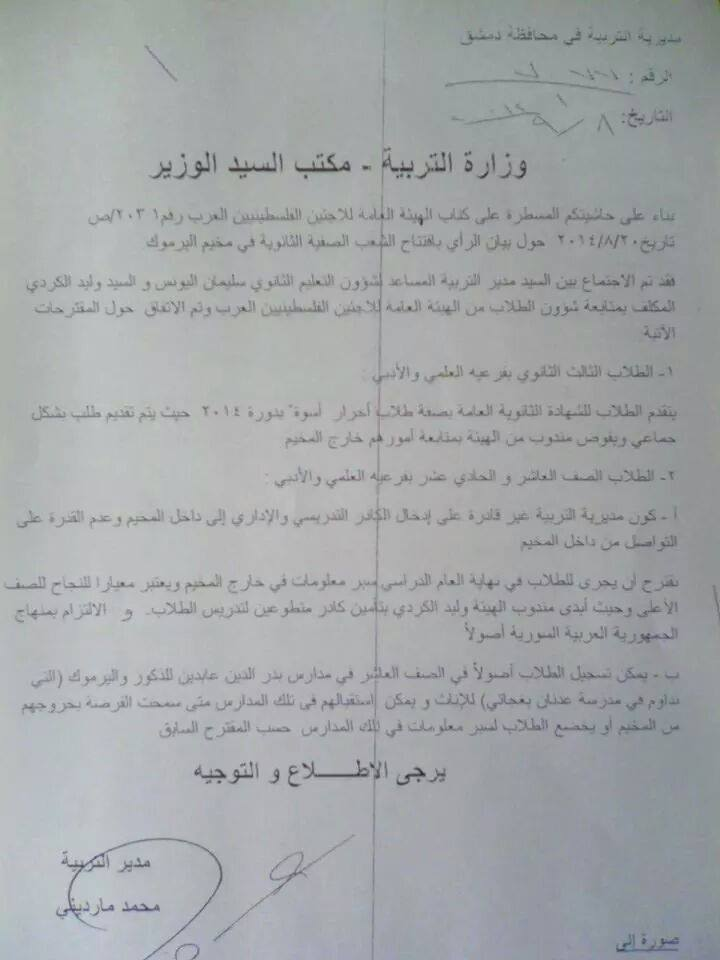 مديرية التربية في محافظة دمشق
الرقم:
التاريخ: ٨ / ٩ /
وزارة التربية - مكتب السيد الوزير
بناء على حاشيتكم المسطرة على كتاب الهيئة العامة للاجئين الفلسطينيين العرب رقم ٢٠٣١/ص
تاريخ ٢٠١٤/٨/٢٠ حول بيان الرأي بافتتاح الشعب الصفية الثانوية في مخيم اليرموك
فقد تم الاجتماع بين السيد مدير التربية المساعد لشؤون التعليم الثانوي سليمان اليونس و السيد وليد الكردي
المكلف بمتابعة شؤون الطلاب من الهيئة العامة للاجئين الفلسطينيين العرب وتم الاتفاق حول المقترحات
الآتية
١- الطلاب الثالث الثانوي بفرعيه العلمي والأدبي :
يتقدم الطلاب للشهادة الثانوية العامة بصفة طلاب أحرار أسوة بدورة ٢٠١٤ حيث يتم تقديم طلب بشكل
جماعي ويفوض مندوب من الهيئة بمتابعة أمورهم خارج المخيم
٢- الطلاب الصف العاشر و الحادي عشر بفرعيه العلمي والأدبي :
أ - كون مديرية التربية غير قادرة على إدخال الكادر التدريسي والإداري إلى داخل المخيم وعدم القدرة على
التواصل من داخل المخيم
نقترح أن يجرى للطلاب في نهاية العام الدراسي سبر معلومات في خارج المخيم ويعتبر معيارا للنجاح للصف
الأعلى وحيث أبدى مندوب الهيئة وليد الكردي بتأمين كادر متطوعين لتدريس الطلاب. و الالتزام بمنهاج
الجمهورية العربية السورية أصولاً
ب - يمكن تسجيل الطلاب أصولاً في الصف العاشر في مدارس بدر الدين عابدين للذكور واليرموك (التي
تداوم في مدرسة عدنان بغجاتي) للإناث و يمكن استقبالهم في تلك المدارس متى سمحت الفرصة بخروجهم
من المخيم أو يخضع الطلاب لسبر معلومات في تلك المدارس حسب المقترح السابق
يرجى الاطـــلاع و التوجيه
مدير التربية
محمد مارديني
صورة إلى